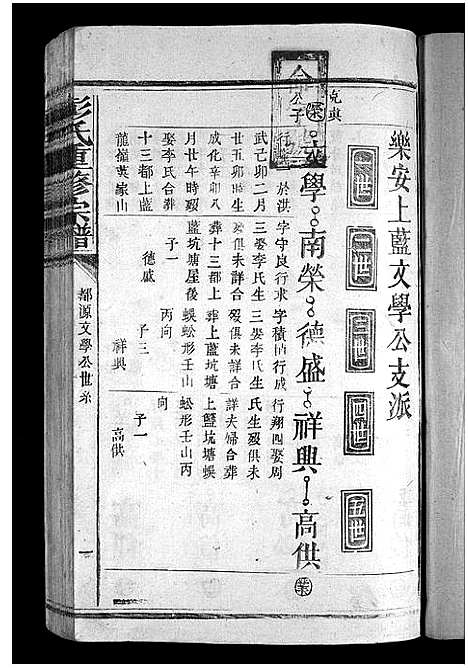 樂安上藍文學公支派
一世
二世
三世
四世
五世
克典
公子
文學
南榮
德盛
祥興
高供
行
於洪
武己卯二月
廿五卯時生
成化辛卯十
月廿午時歿
娶李氏合葬
十三都上藍
龍嶺英家山
字守良行求
三娶李氏生
歿俱未詳合
葬十三都上
藍坑塘屋後
子一
德盛
字積行成
三娶李氏生
歿俱未詳合
葬上藍坑塘
蜈蚣形壬山
丙向
子三
祥興
行翔四娶周
氏生歿俱未
詳夫婦合葬
上藍坑塘蜈
蚣形壬山丙
向
子一
高供
彭氏重修宗譜
都源文學公世系
一